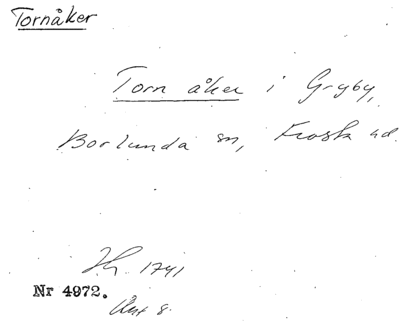 Tornåker
Torn åker i Gryby,
Borlunda sn, Frosta hd.
1741
Nr 4972.
8.